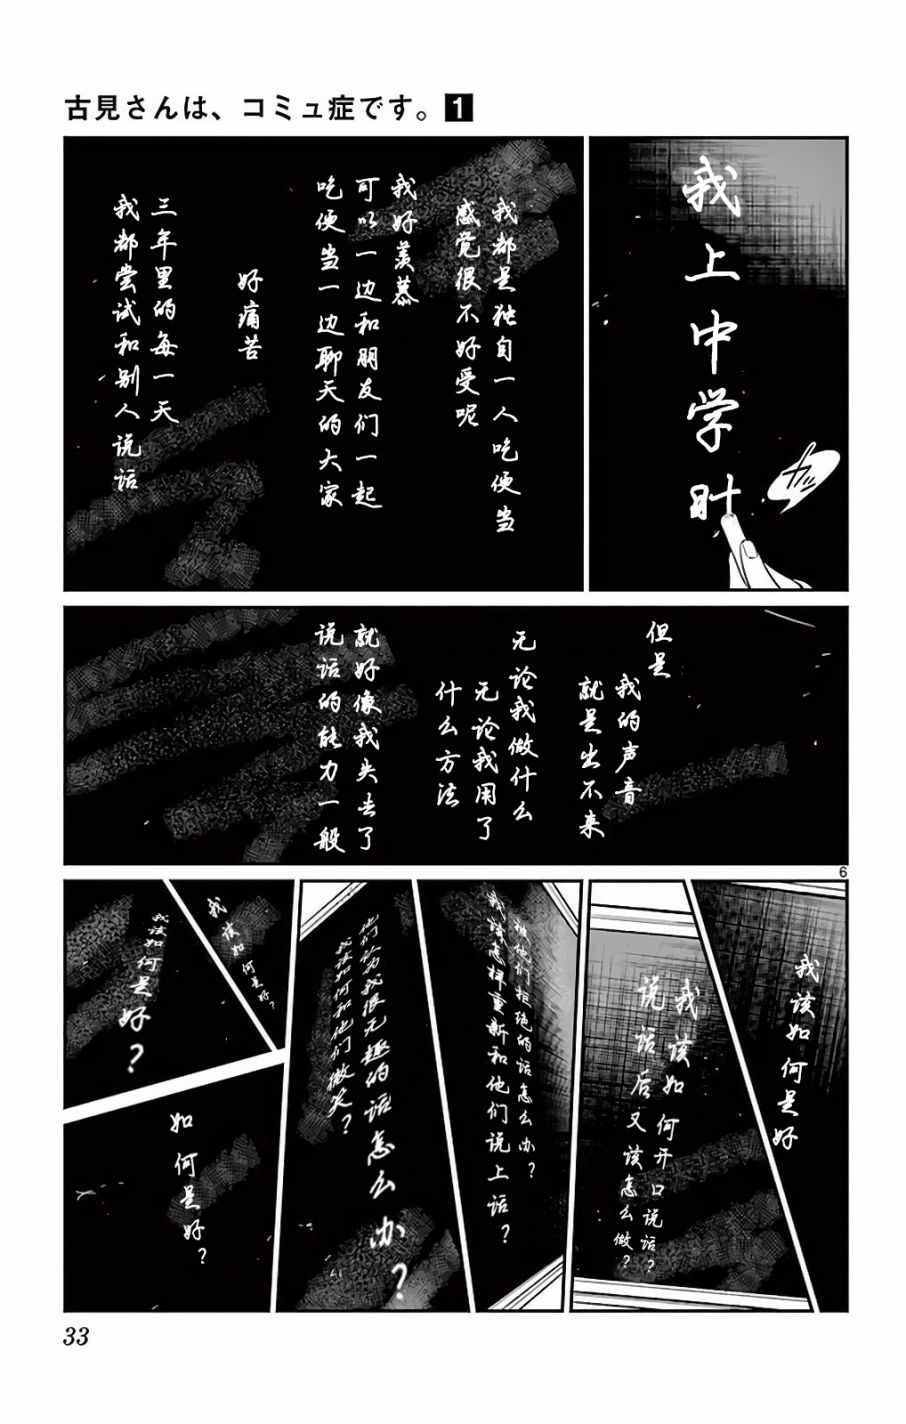 古見さんは、コミュ症です。1
我上中学时
カッ
我都是独自一人吃便当
感觉很不好受呢
我好羡慕
可以一边和朋友们一起
吃便当一边聊天的大家
好痛苦
三年里的每一天
我都尝试和别人说话
但是
我的声音
就是出不来
无论我做什么
无论我用了
什么方法
就好像我失去了
说话的能力一般
6
我该如何是好
我该如何开口说话？
说话后又该怎么做？
被他们拒绝的话怎么办？
我该怎样重新和他们说上话？
他们认为我很无趣的话怎么办？
我该如何和他们微笑？
我该如何是好？
我该如何是好？
如何是好？
33